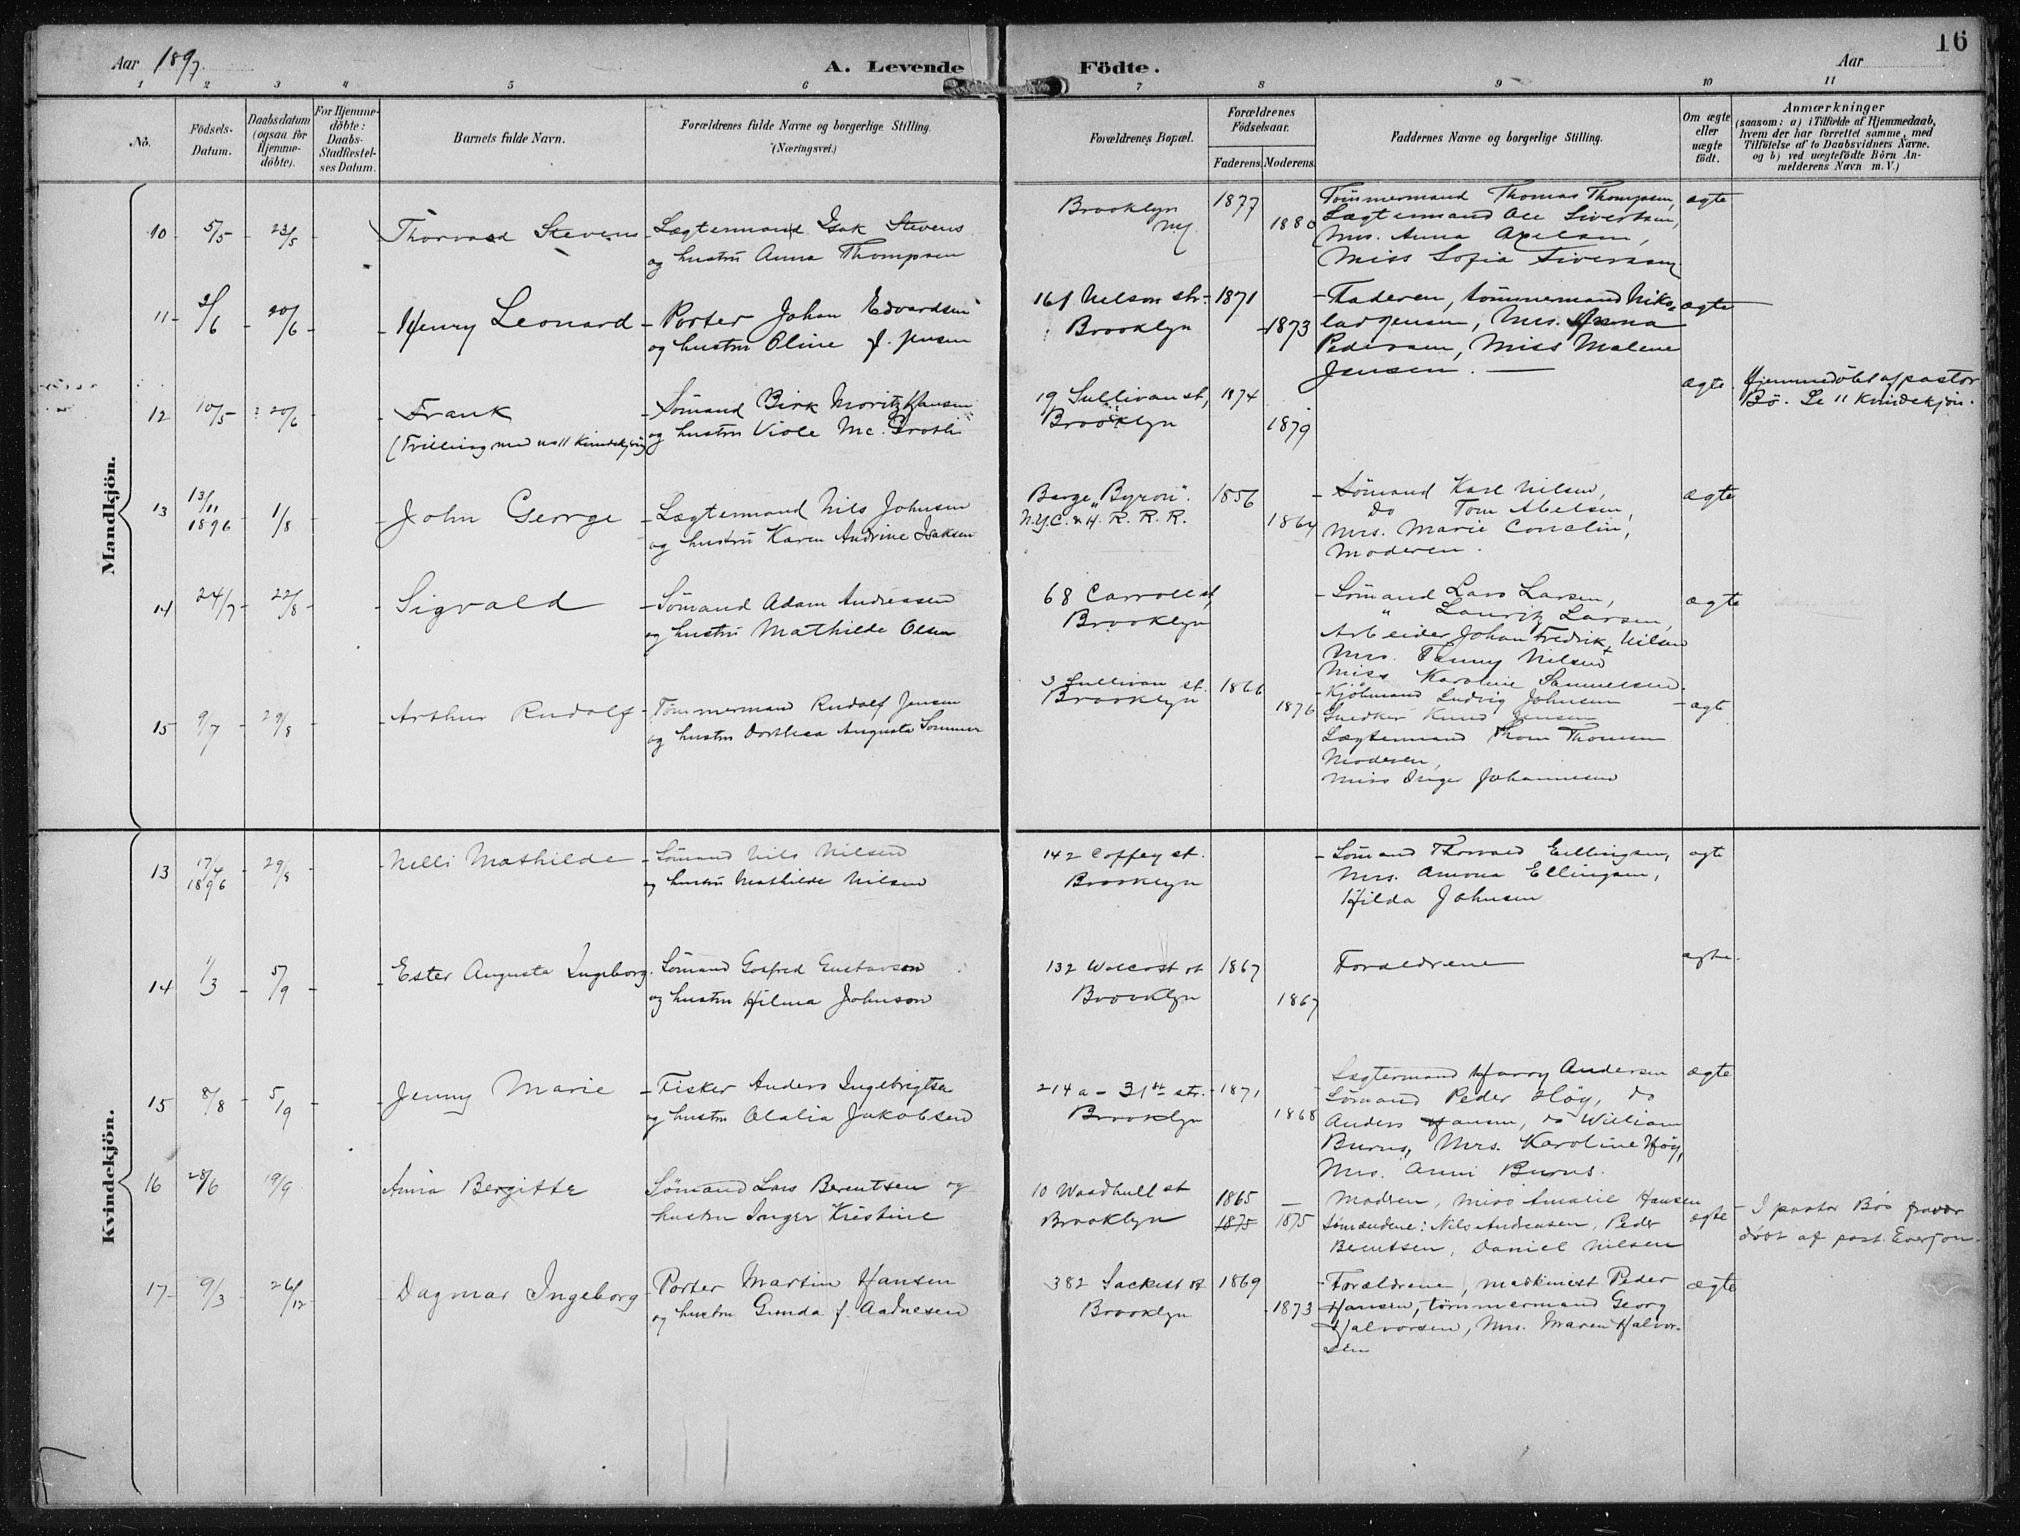 Aar 1897.
A. Levende Födte.
Aar
16
1 2 3 4 5 6 7 8 9 10 11
No.
Födsels-Datum.
Daabsdatum (ogsaa for Hjemmedöbte).
For Hjemmedöbte: Daabs-Stadfæstelses Datum.
Barnets fulde Navn.
Forældrenes fulde Navne og borgerlige Stilling.
(Næringsvei.)
Forældrenes Bopæl.
Forældrenes Födselsaar.
Faderens. Moderens.
Faddernes Navne og borgerlige Stilling.
Om ægte eller uægte födt.
Anmærkninger
(saasom: a) i Tilfælde af Hjemmedaab, hvem der har forrettet samme, med Tilföielse af to Daabsvidners Navne. og b) ved uægtefödte Börn Anmelderens Navn m. V.)
Mandkjön.
10 5/5 23/5 Thorvald Stevens
Lægtermand Isak Stevens
og hustru Anna Thompsen
Brooklyn
NY.
1877
1880
Tømmermand Thomas Thompsen,
Lægtermand Ole Sivertsen,
Mrs. Anna Axelsen,
Miss Sofia Siversen
ægte
11 2/6 20/6 Henry Leonard
Porter Johan Edvardsen
og hustru Oline f. Jensen
161 Nelson str.
Brooklyn
1871
1873
Faderen, tømmermand Niko-
lai Jensen, Mrs. Anna
Pedersen, Miss Malene
Jensen.
ægte
12 10/5 20/6 Frank
(Tvilling med no 11 Kvindekjøn)
Sømand Birk Moritz Hansen
og hustru Viole Mc. Groth
19 Sullivan st,
Brooklyn
1874
1879
ægte.
Hjemmedöbt af pastor
Bö. Se 11 Kvindekjön.
13 13/11 1896 1/8 John George
Lægtermand Nils Johnsen
og hustru Karen Andrine Isaksen
Barge "Byron".
N.Y.C. & H. R. R. R.
1856
1864
Sømand Karl Nilsen,
Do Tom Abelsen,
Mrs. Marie Conclin,
Moderen.
ægte
14 24/7 22/8 Sigvald
Sømand Adam Andreasen
og hustru Mathilde Olsen
68 Carroll st,
Brooklyn
Sømand Lars Larsen,
" Lauritz Larsen,
Arbeider Johan Fredrik Nilsen
Mrs. Fanny Nilsen
Miss Karoline Samuelsen.
ægte
15 9/7 29/8 Arthur Rudolf
Tømmermand Rudolf Jensen
og hustru Dorthea Augusta Sommer
3 Sullivan st.
Brooklyn
1866
1876
Kjöbmand Ludvig Johnsen
Snedker Knud Jensen
Lægtermand Thom Thomsen
Moderen,
Miss Inger Johannesen
ægt
Kvindekjön.
13 17/4 1896 29/8 Nelli Mathilde
Sømand Nils Nilsen
og hustru Mathilde Nilsen
142 Coffey st.
Brooklyn
Sømand Thorvald Ellingsen,
Mrs. Amona Ellingsen,
Hilda Johnsen
ægte
14 1/3 5/9 Ester Augusta Ingeborg.
Sømand Gotfred Gustavson
og hustru Hilma Johnson
132 Wolcott st
Brooklyn
1867
1867
Forældrene
ægte.
15 8/8 5/9 Jenny Marie
Fisker Anders Ingebrigtsen
og hustru Olalia Jakobsen
214a - 31st str.
Brooklyn
1871
1868
Lægtermand Harry Andersen
Sømand Peder Höy, do
Anders Hansen, do William
Burns, Mrs. Karoline Höy,
Mrs. Anni Burns.
ægte
16 28/6 19/9 Anna Bergitte
Sømand Lars Berentsen og
hustru Inger Kristine
10 Woodhull st
Brooklyn
1865
1875
1875
Modren, Miss Amalie Hansen
Sømændene: Nils Andreasen, Peder
Berentsen, Daniel Nilsen
ægte
I pastor Bös fravær
döbt af past. Everson.
17 9/3 26/12 Dagmar Ingeborg
Porter Martin Hansen
og hustru Gunda f. Aadnesen
382 Sackett st
Brooklyn
1869
1873
Forældrene, maskinist Peder
Hansen, tømmermand Georg
Halvorsen, Mrs. Maren Halvor-
sen
ægte